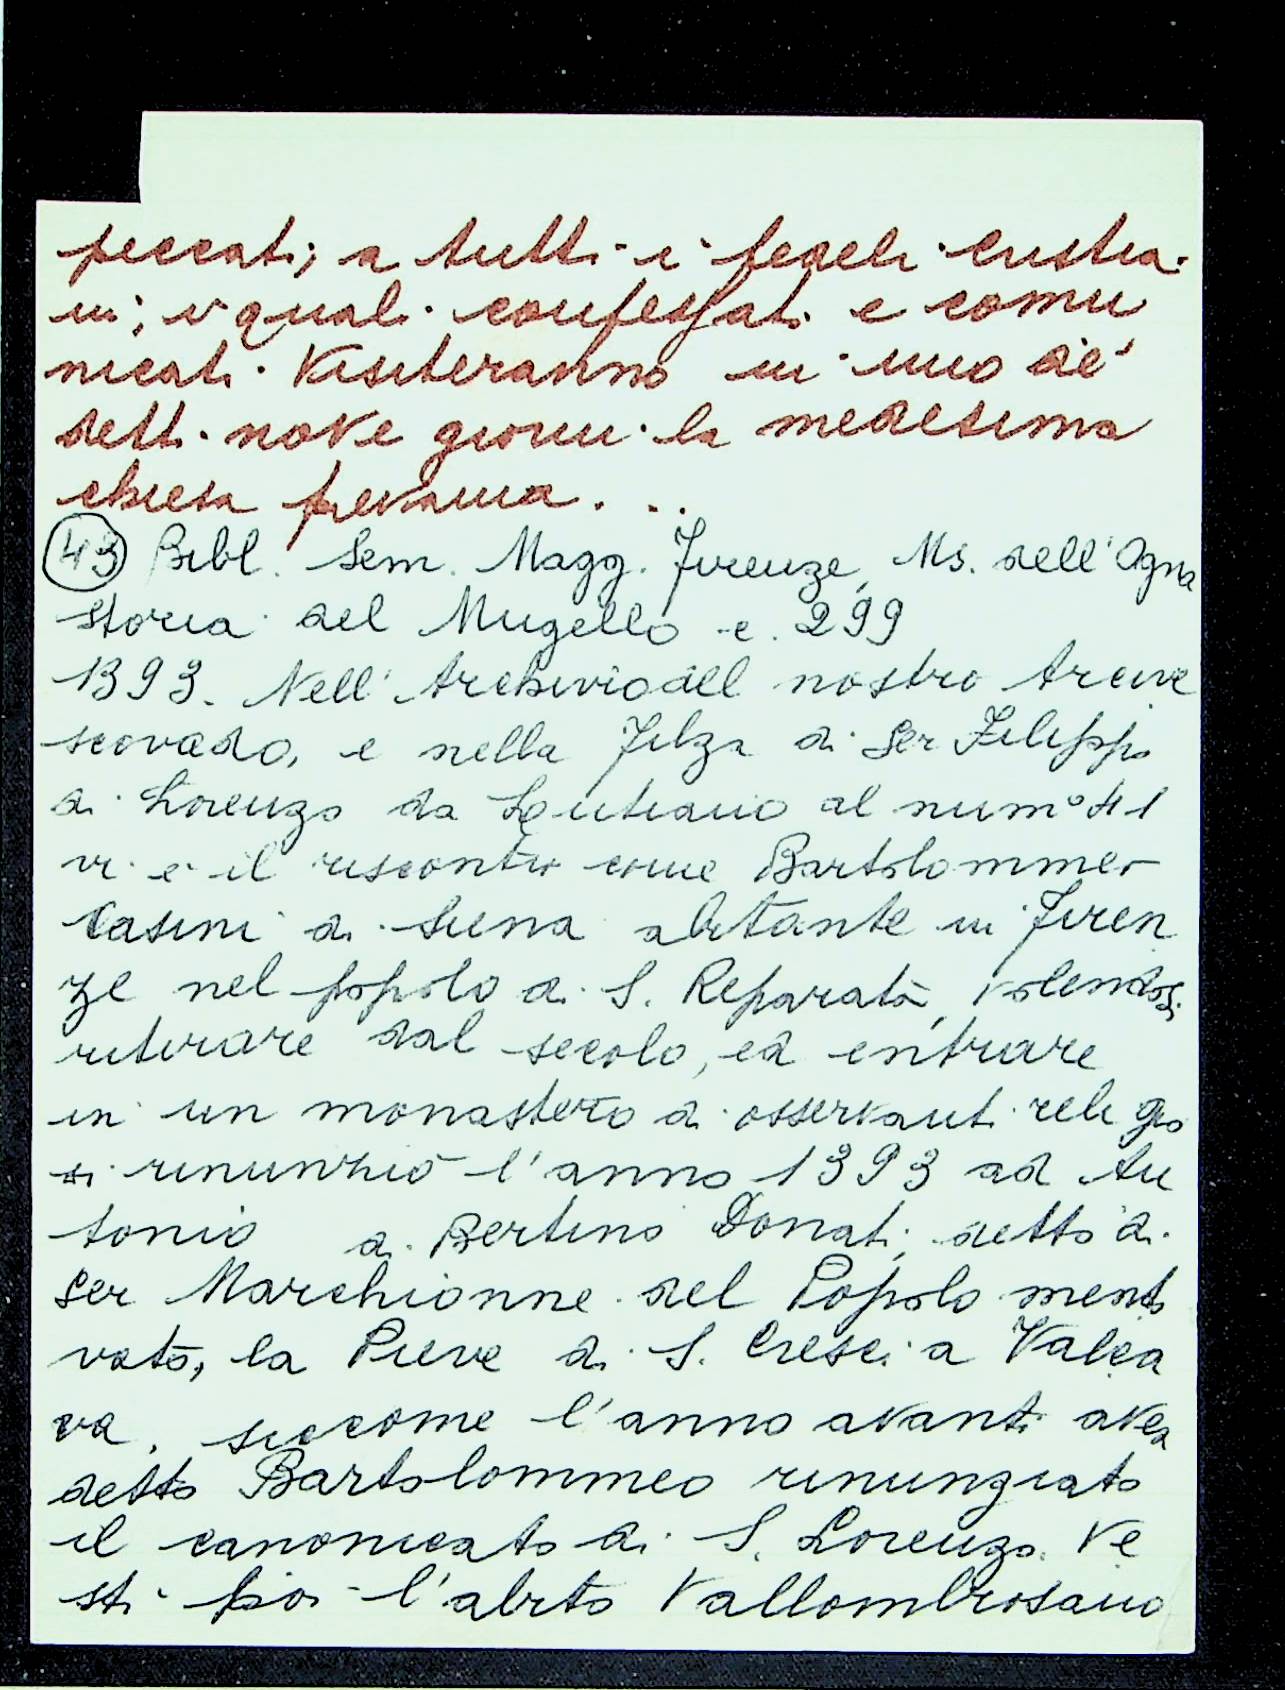 peccati; a tutti i fedeli cristia-
ni; i quali confessati e comu
nicati visiteranno in uno de'
detti nove giorni la medesima
chiesa pievania...
(43) Bibl. Sem. Magg. Firenze, Ms. dell'Ogna
storia del Mugello c. 299
1393. Nell'Archivio del nostro Arcive
scovado, e nella Filza di Ser Filippo
di Lorenzo da Lutiano al num° 41
vi è il riscontro come Bartolommeo
Casini di Siena abitante in Firen
ze nel popolo di S. Reparata, volendosi
ritirare dal secolo, ed entrare
in un monastero di osservanti religio
si rinunziò l'anno 1393 ad An
tonio di Bertino Donati, detto di
Ser Marchionne del Popolo mento
vato, la Pieve di S. Cresci a Valca
va, siccome l'anno avanti avea
detto Bartolommeo rinunziato
il canonicato di S. Lorenzo. Ve
stì poi l'abito Vallombrosano